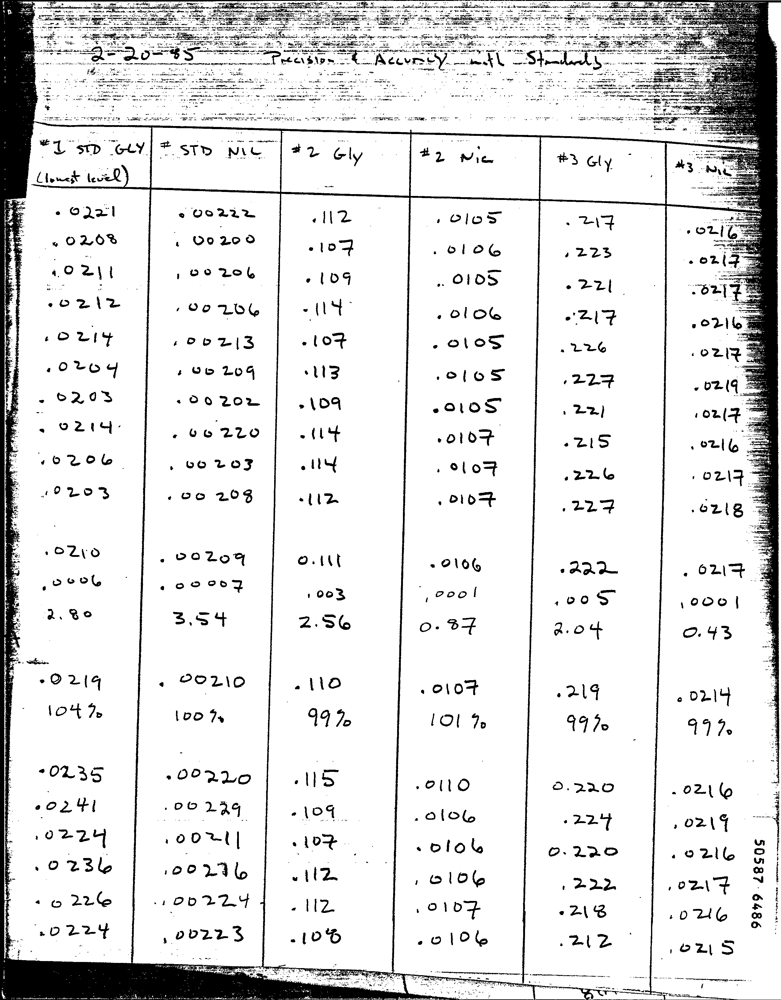 2-20-85 Precision & Accuracy with Standards
#1 STD GLY # STD NIC #2 Gly #2 Nic #3 Gly. #3 Nic
(lowest level)
.0221 .00222 .112 .0105 .217 .0216
.0208 .00200 .107 .0106 .223 .0217
.0211 .00206 .109 .0105 .221 .0217
.0212 .00206 .114 .0106 .217 .0216
.0214 .00213 .107 .0105 .226 .0217
.0204 .00209 .113 .0105 .227 .0219
.0203 .00202 .109 .0105 .221 .0217
.0214 .00220 .114 .0107 .215 .0216
.0206 .00203 .114 .0107 .226 .0217
.0203 .00208 .112 .0107 .227 .0218
.0210 .00209 0.111 .0106 .222 .0217
.0006 .00007 .003 .0001 .005 .0001
2.80 3.54 2.56 0.87 2.04 0.43
.0219 .00210 .110 .0107 .219 .0214
104% 100% 99% 101% 99% 99%
.0235 .00220 .115 .0110 0.220 .0216
.0241 .00229 .109 .0106 .224 .0219
.0224 .00211 .107 .0106 0.220 .0216
.0236 .112 .0106 .222 .0217
.0226 .00224 .112 .0107 .218 .0216
.0224 .00223 .108 .0106 .212 .0215
50587 6486